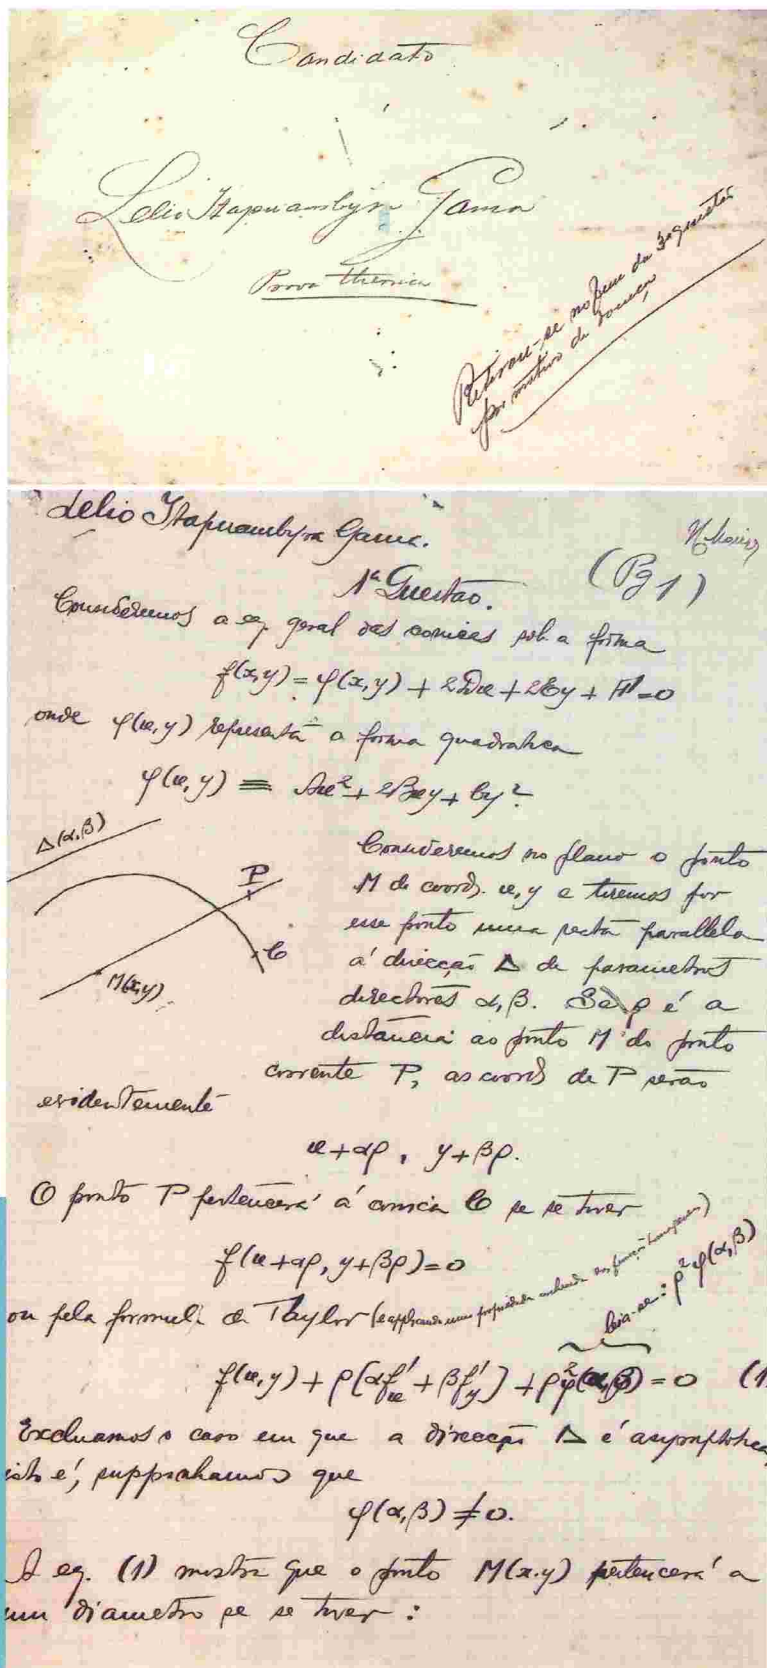 Candidato
Lelio Itapuambyra Gama
Prova
Retirou-se no fim da 3ª questão
por motivo de doença
Lelio Itapuambyra Gama.
(Pg 1)
1ª Questão.
Consideremos a eq. geral das conicas sob a forma
f(x,y) = φ(x,y) + 2Dx + 2Ey + F = 0
onde φ(x,y) representa a forma quadratica
φ(x,y) ≡ Ax² + 2Bxy + Cy².
Δ(α,β)
P
C
M(x,y)
Consideremos no plano o ponto
M de coords. x, y e tiremos por
esse ponto uma recta parallela
á direcção Δ de parametros
directores α, β. Se ρ é a
distancia ao ponto M do ponto
corrente P, as coords de P serão
evidentemente
x+αρ, y+βρ.
O ponto P pertencerá á conica C se se tiver
f(x+αρ, y+βρ)=0
ou pela formula de Taylor (e applicando uma propriedade das funções homogeneas)
leia-se: ρ²φ(α,β)
f(x,y) + ρ(αf'x + βf'y) + ρ²φ(α,β) = 0 (1)
Excluamos o caso em que a direcção Δ é asymptotica,
isto é, supponhamos que
φ(α,β) ≠ 0.
A eq. (1) mostra que o ponto M(x.y) pertencerá a
um diametro se se tiver :